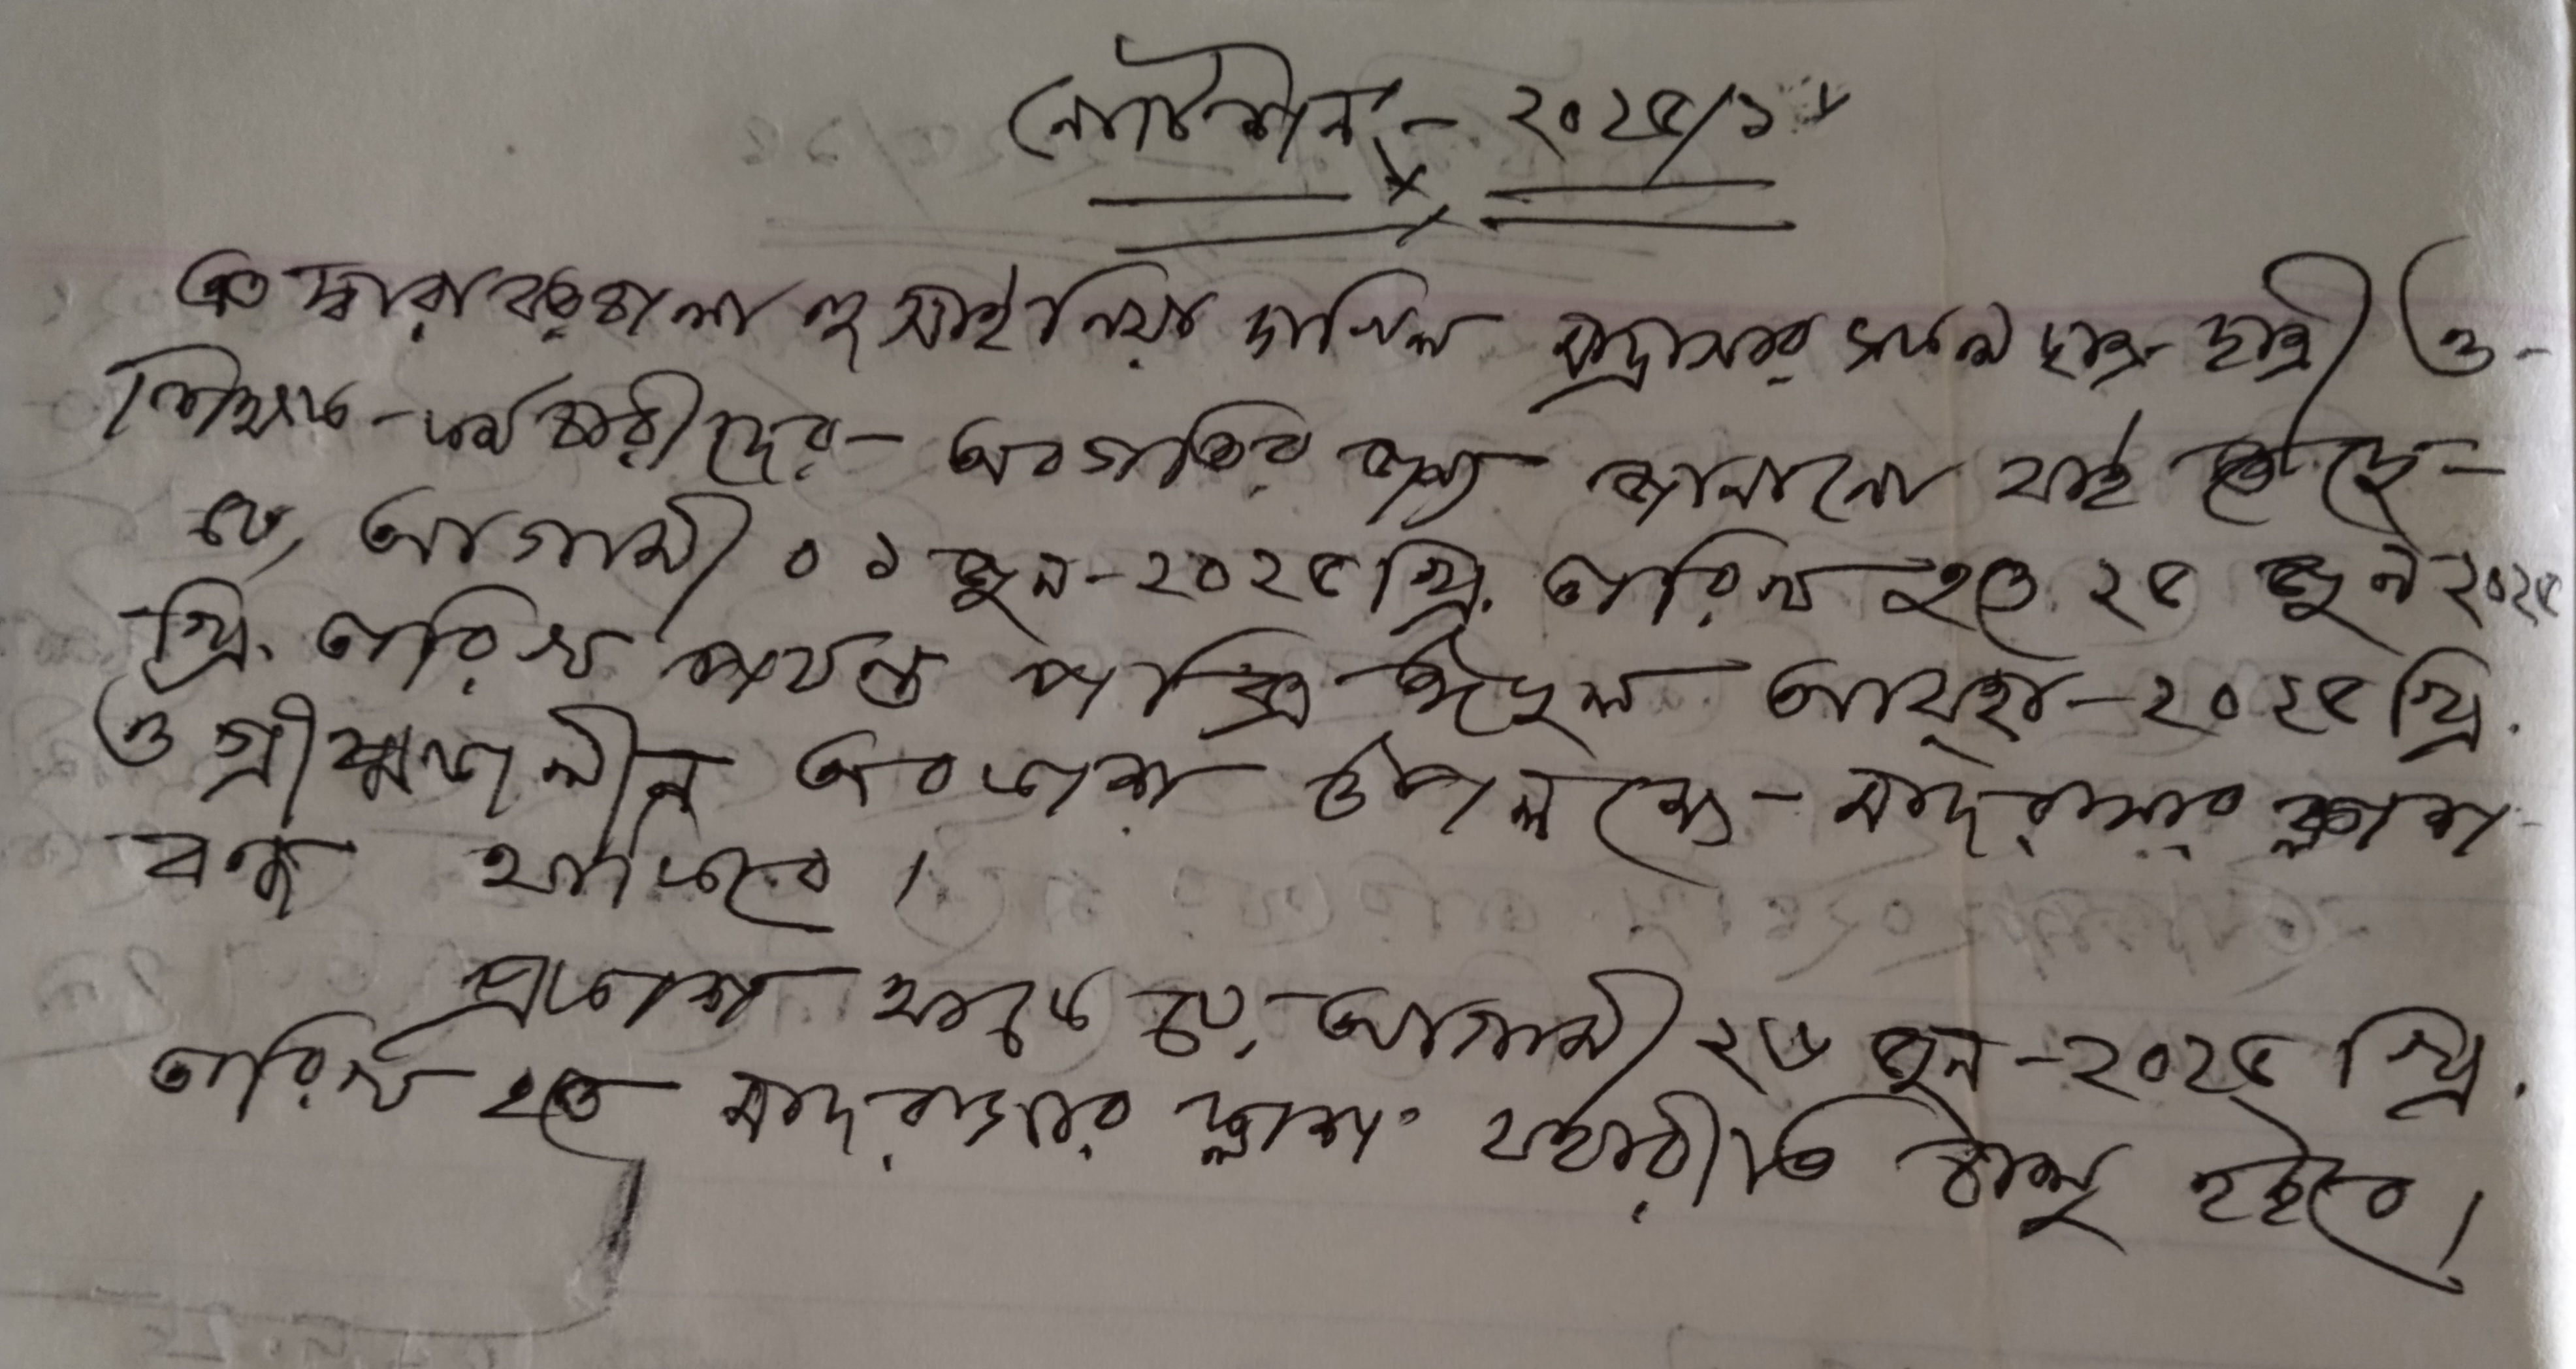 নোটিশ নং - ২০২৫/১
এত দ্বারা বড়তলা হুসাইনিয়া দাখিল মাদ্রাসার সকল ছাত্র-ছাত্রী ও-
শিক্ষক-কর্মচারীদের- অবগতির জন্য জানানো যাইতেছে-
যে, আগামী ০১ জুন-২০২৫ খ্রি. তারিখ হতে ২৫ জুন ২০২৫
খ্রি. তারিখ পর্যন্ত পবিত্র ঈদুল আযহা-২০২৫ খ্রি.
ও গ্রীষ্মকালীন অবকাশ উপলক্ষ্যে- মাদরাসার ক্লাশ
বন্ধ থাকিবে।
প্রকাশ থাকে যে, আগামী ২৬ জুন-২০২৫ খ্রি.
তারিখ হতে মাদরাসার ক্লাশ যথারীতি চালু হইবে।